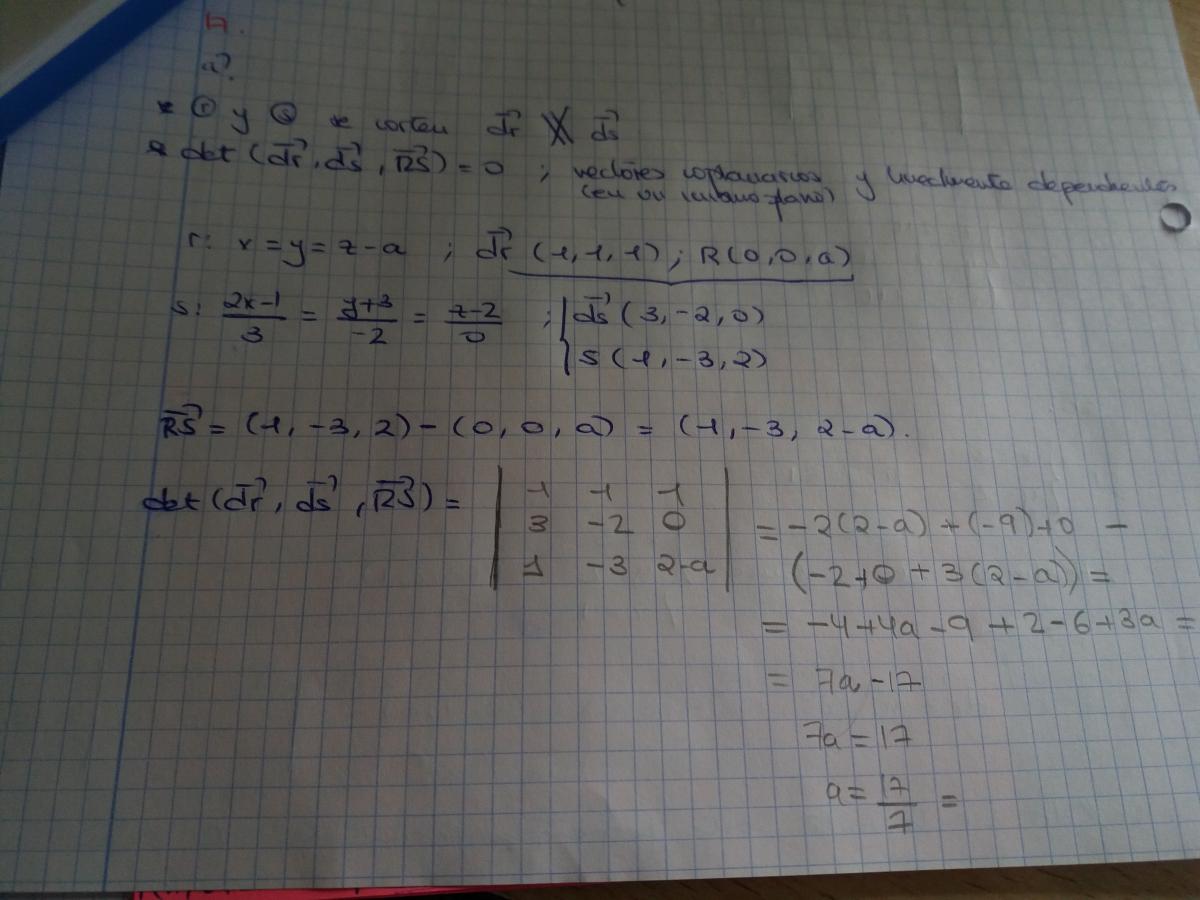 7.
a?
* ⓡ y ⓢ se corten d⃗r ∦ d⃗s
* det (d⃗r, d⃗s, R⃗S) = 0 ; vectores coplanarios y linealmente dependientes
(en un mismo plano)
r: x = y = z - a ; d⃗r (1, 1, 1) ; R(0, 0, a)
s: (2x-1)/3 = (y+3)/-2 = (z-2)/0 ; { d⃗s (3, -2, 0)
S (1, -3, 2)
R⃗S = (1, -3, 2) - (0, 0, a) = (1, -3, 2-a).
det (d⃗r, d⃗s, R⃗S) = | 1 1 1
3 -2 0
1 -3 2-a | = -2(2-a) + (-9) + 0 -
(-2+0+3(2-a)) =
= -4+4a-9+2-6+3a =
= 7a-17
7a = 17
a = 17/7 =